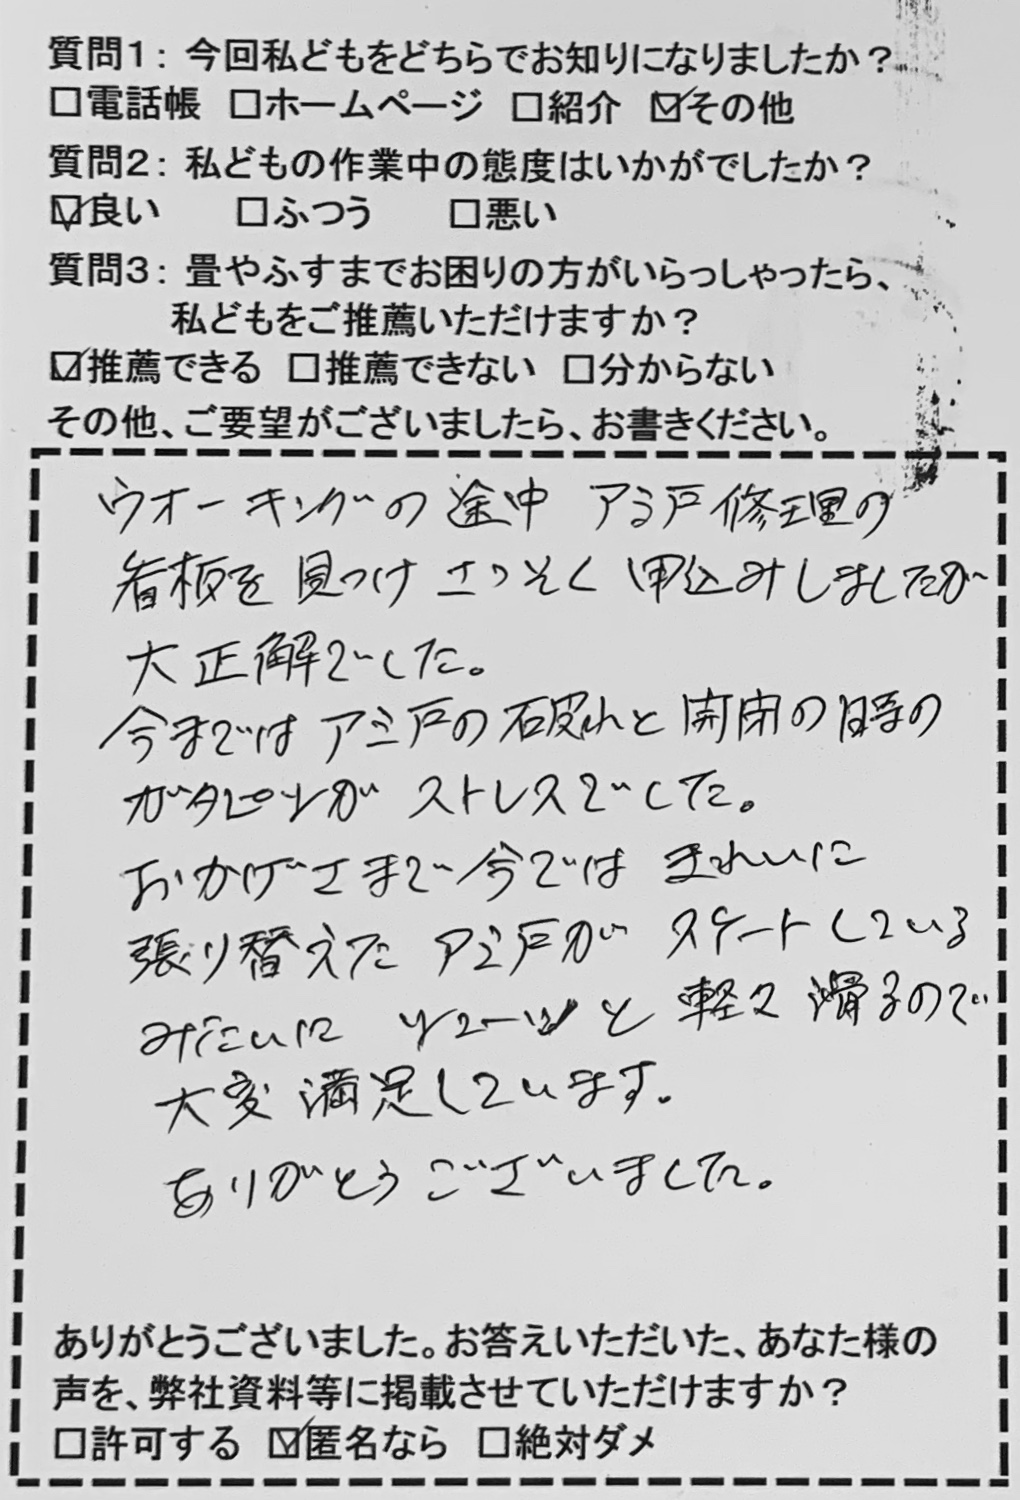 質問1：今回私どもをどちらでお知りになりましたか？
□電話帳 □ホームページ □紹介 ☑その他
質問2：私どもの作業中の態度はいかがでしたか？
☑良い □ふつう □悪い
質問3：畳やふすまでお困りの方がいらっしゃったら、
私どもをご推薦いただけますか？
☑推薦できる □推薦できない □分からない
その他、ご要望がございましたら、お書きください。
ウオーキングの途中 アミ戸修理の
看板を見つけさっそく申込みしましたが
大正解でした。
今まではアミ戸の破れと開閉の時の
ガタピシがストレスでした。
おかげさまで今では きれいに
張り替えたアミ戸がスケートしている
みたいに ツーッと軽々滑るので
大変満足しています。
ありがとうございました。
ありがとうございました。お答えいただいた、あなた様の
声を、弊社資料等に掲載させていただけますか？
□許可する ☑匿名なら □絶対ダメ